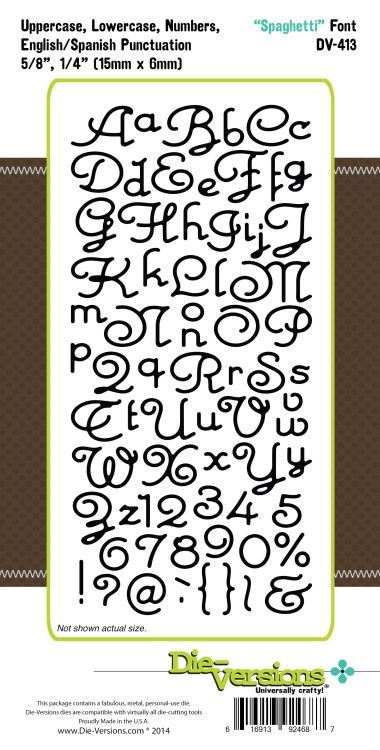 Uppercase, Lowercase, Numbers,
English/Spanish Punctuation
5/8”, 1/4” (15mm x 6mm)
“Spaghetti” Font
DV-413
A a B b C c
D d E e F f g
G H h I i j J
K k L l M
m N o n O P
p Q q R r S s
T t U u V v w
W X x Y y
Z z 1 2 3 4 5
6 7 8 9 0 %
! ? @ ~ : { } ( &
Not shown actual size.
Die-Versions
Universally crafty!®
This package contains a fabulous, metal, personal-use die.
Die-Versions dies are compatible with virtually all die-cutting tools
Proudly Made in the U.S.A.
www.Die-Versions.com ® 2014
6 16913 92468 7